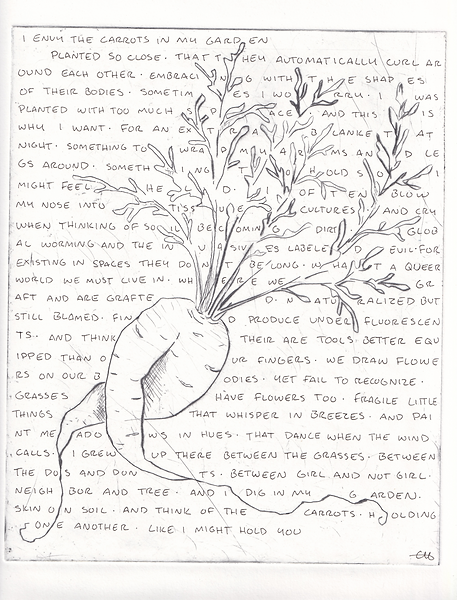 I ENVY THE CARROTS IN MY GARDEN
PLANTED SO CLOSE · THAT THEY AUTOMATICALLY CURL AR
OUND EACH OTHER · EMBRACING WITH THE SHAPES
OF THEIR BODIES · SOMETIMES I WORRY · I WAS
PLANTED WITH TOO MUCH SPACE AND THIS IS
WHY I WANT · FOR AN EXTRA BLANKET AT
NIGHT · SOMETHING TO WRAP MY ARMS AND LE
GS AROUND · SOMETHING TO HOLD SO I
MIGHT FEEL HELD · I OFTEN BLOW
MY NOSE INTO TISSUE CULTURES AND CRY
WHEN THINKING OF SOIL BECOMING DIRT GLOB
AL WORMING AND THE INVASIVES LABELED EVIL · FOR
EXISTING IN SPACES THEY DON'T BELONG · WHAT A QUEER
WORLD WE MUST LIVE IN · WHERE WE GR
AFT AND ARE GRAFTED · NATURALIZED BUT
STILL BLAMED · FIND PRODUCE UNDER FLUORESCEN
TS · AND THINK THEIR ARE TOOLS · BETTER EQU
IPPED THAN OUR FINGERS · WE DRAW FLOWE
RS ON OUR BODIES · YET FAIL TO RECOGNIZE ·
GRASSES HAVE FLOWERS TOO · FRAGILE LITTLE
THINGS THAT WHISPER IN BREEZES · AND PAI
NT MEADOWS IN HUES · THAT DANCE WHEN THE WIND
CALLS · I GREW UP THERE BETWEEN THE GRASSES · BETWEEN
THE DOS AND DON'TS · BETWEEN GIRL AND NOT GIRL ·
NEIGHBOR AND TREE · AND I DIG IN MY GARDEN ·
SKIN ON SOIL · AND THINK OF THE CARROTS · HOLDING
ONE ANOTHER · LIKE I MIGHT HOLD YOU